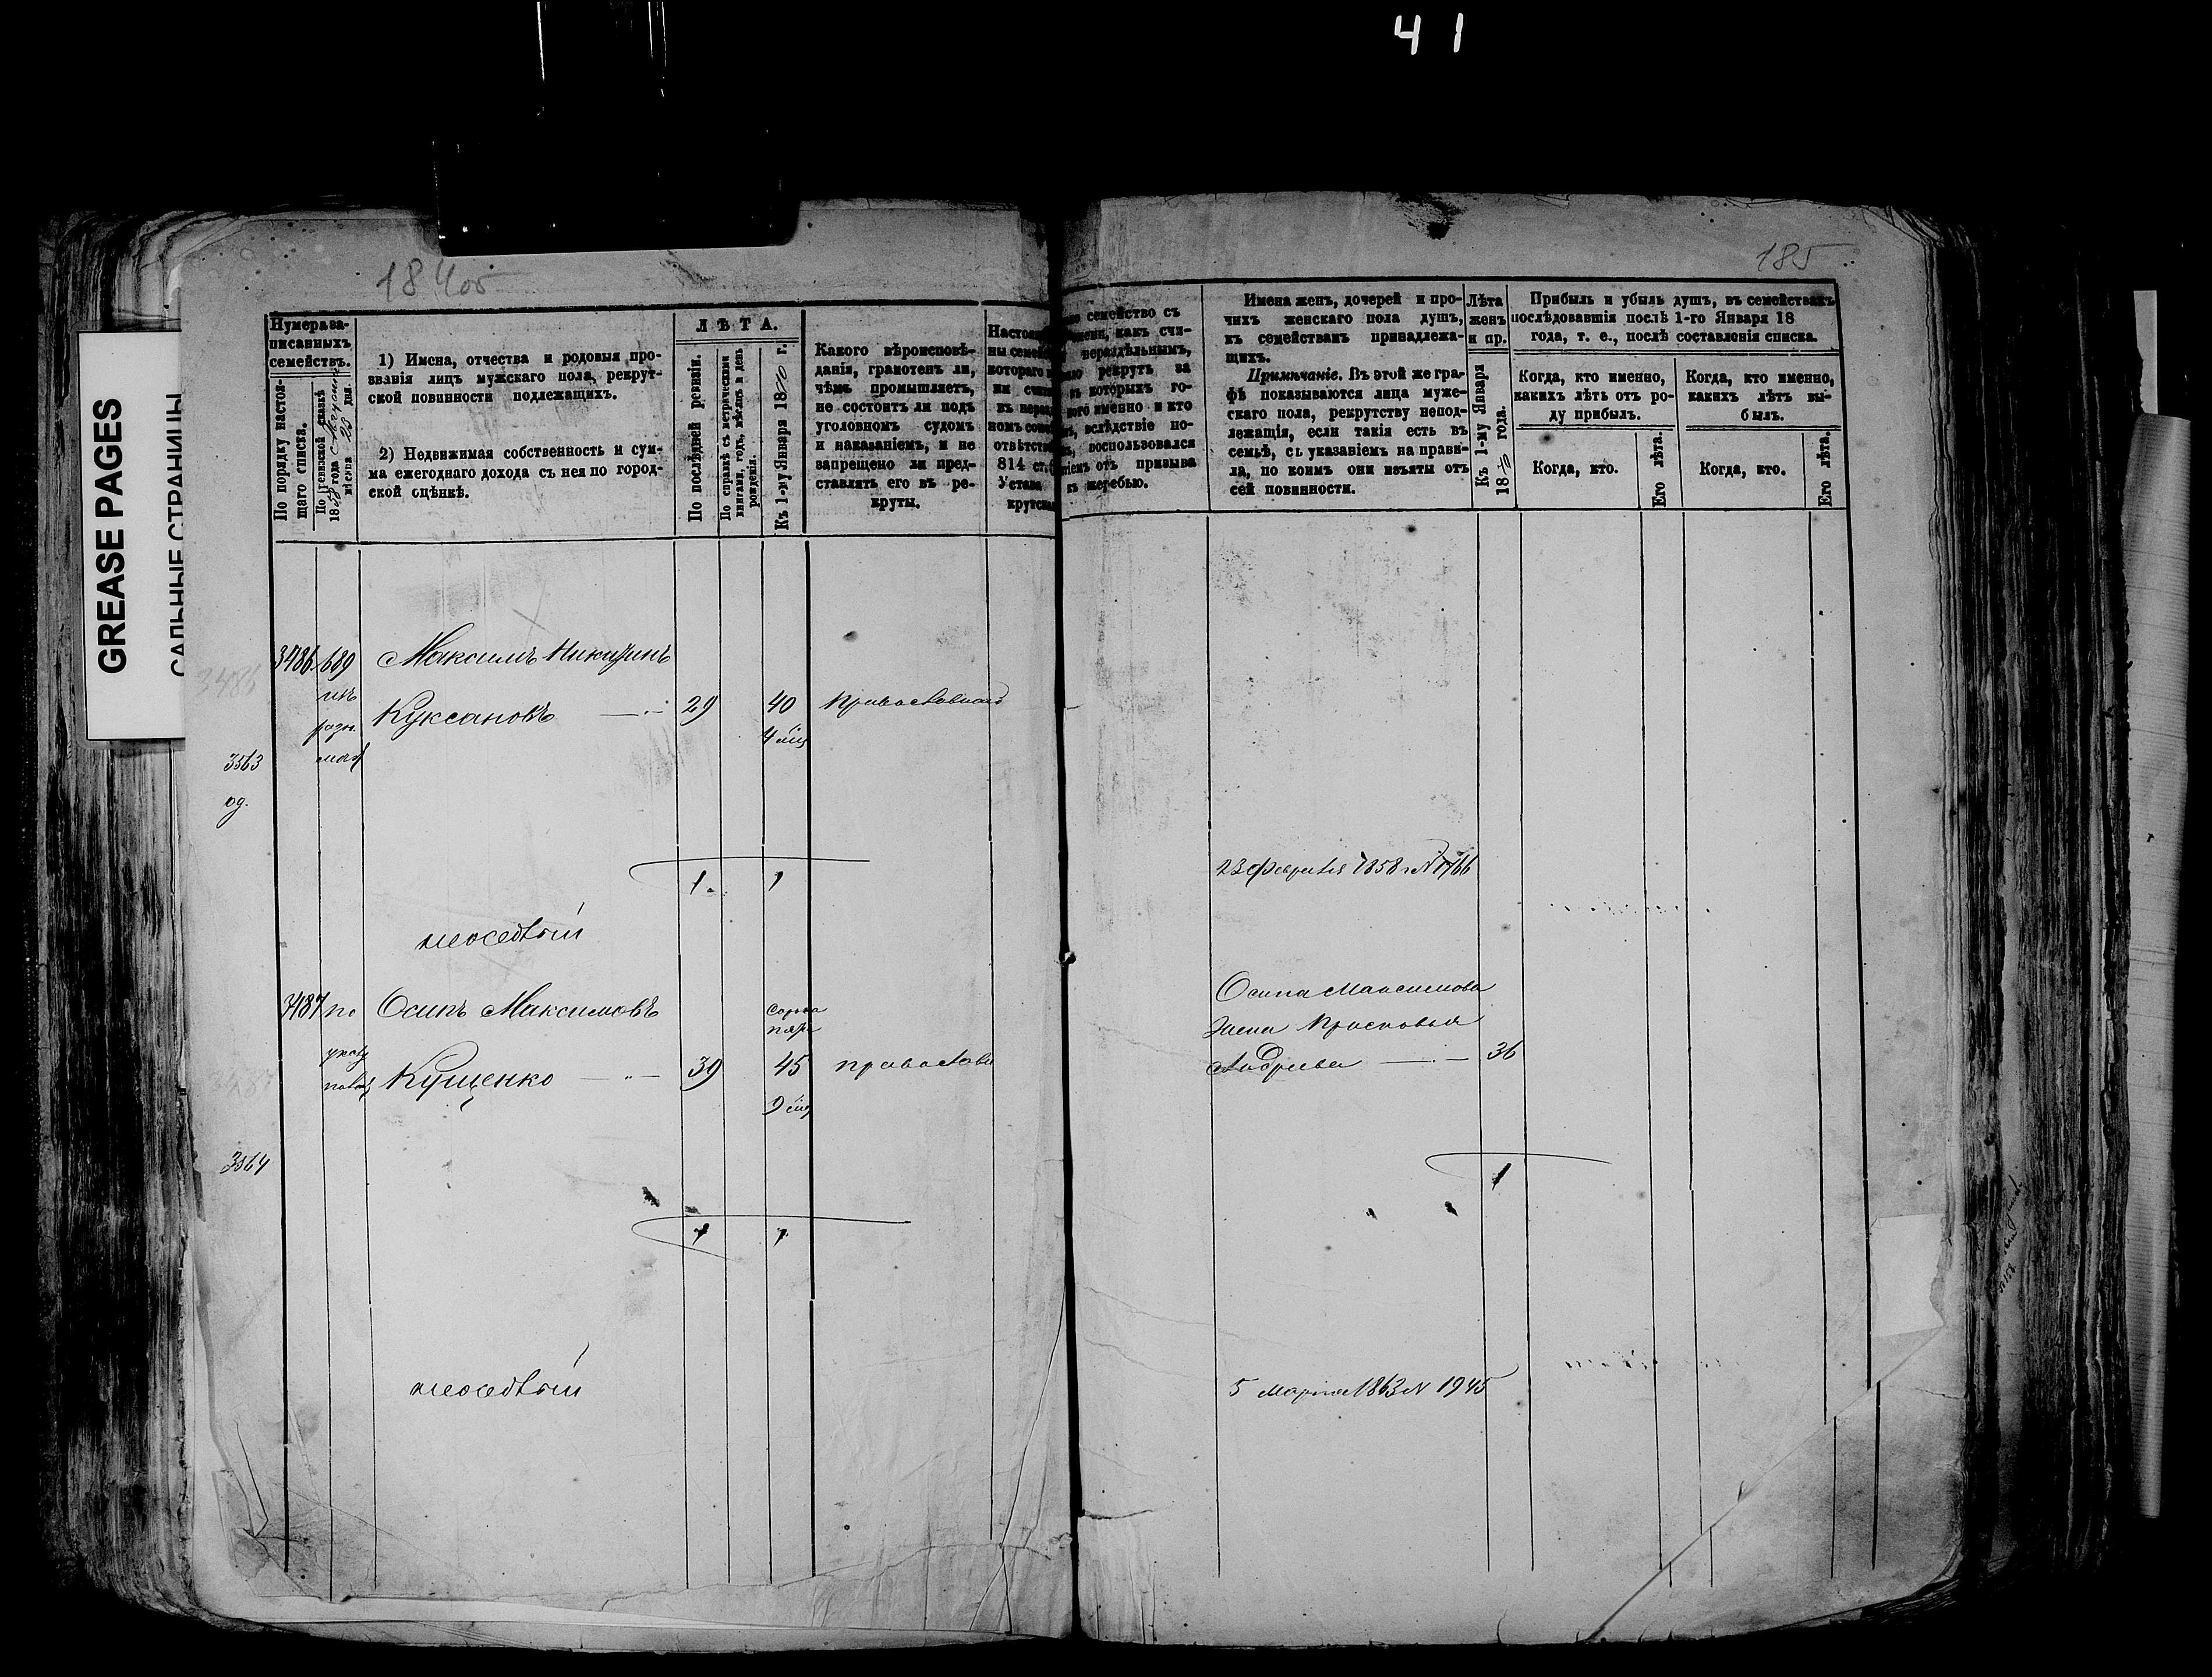 41
GREASE PAGES
САЛЬНЫЕ СТРАНИЦЫ
184об
185
Нумера за-
писанныхъ
семействъ.
По порядку настоя-
щаго списка.
По ревизской сказкѣ
1858 года
мѣсяца 28 дня.
1) Имена, отчества и родовыя про-
званія лицъ мужскаго пола, рекрут-
ской повинности подлежащихъ.
2) Недвижимая собственность и сум-
ма ежегоднаго дохода съ нея по город-
ской оцѣнкѣ.
ЛѢТА.
По послѣдней ревизіи.
По справкѣ съ метрическими
книгами, годъ, мѣсяцъ и день
рожденія.
Къ 1-му Января 1870 г.
Какого вѣроисповѣ-
данія, грамотенъ ли,
чѣмъ промышляетъ,
не состоитъ ли подъ
уголовнымъ судомъ
и наказаніемъ, и не
запрещено ли пред-
ставлять его въ ре-
круты.
Настоящ
ны семей
котораго
ни счита
въ нераз
номъ сем
отвѣтств
814 ст.
Устава
крутска
семейство съ
мени, какъ счи-
нераздѣльнымъ,
рекрутъ за
въ которыхъ го-
кого именно и кто
вслѣдствіе по-
воспользовался
тіемъ отъ призыва
къ жеребью.
Имена женъ, дочерей и про-
чихъ женскаго пола душъ,
къ семействамъ принадлежа-
щихъ.
Примѣчаніе. Въ этой же гра-
фѣ показываются лица муже-
скаго пола, рекрутству непод-
лежащія, если такія есть въ
семьѣ, съ указаніемъ на прави-
ла, по коимъ они изъяты отъ
сей повинности.
Лѣта
женъ
и пр.
Къ 1-му Января
1870 года.
Прибыль и убыль душъ, въ семействахъ
послѣдовавшія послѣ 1-го Января 18
года, т. е., послѣ составленія списка.
Когда, кто именно,
какихъ лѣтъ отъ ро-
ду прибылъ.
Когда, кто.
Его лѣта.
Когда, кто именно,
какихъ лѣтъ вы-
былъ.
Когда, кто.
Его лѣта.
3486
3486 689 Максимъ Никитинъ
изъ
разн.
Куксановъ 29 40 православнаго
4 мѣц
3563
од.
1 1
23 февраля 1858 г N 1766
неоседлый
3487 по Осипъ Максимовъ
сорокъ
пять
указу
Кущенко 39 45 православн
9 мѣц
Осипа Максимова
жена Прасковья
Андреева 36
3564
1
1 1
неоседлый
5 марта 1863 N 1945